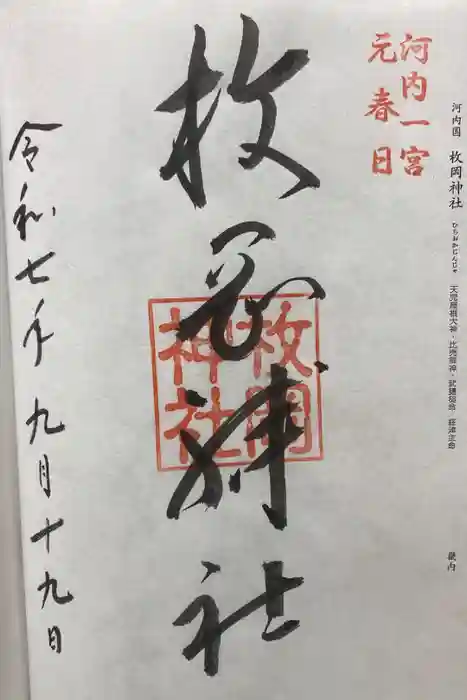 河内国 枚岡神社 ひらおかじんじゃ 天児屋根大神・比売御神・武甕槌命・経津主命
河内一宮
元春日
枚岡神社
枚岡
神社
令和七年九月十九日